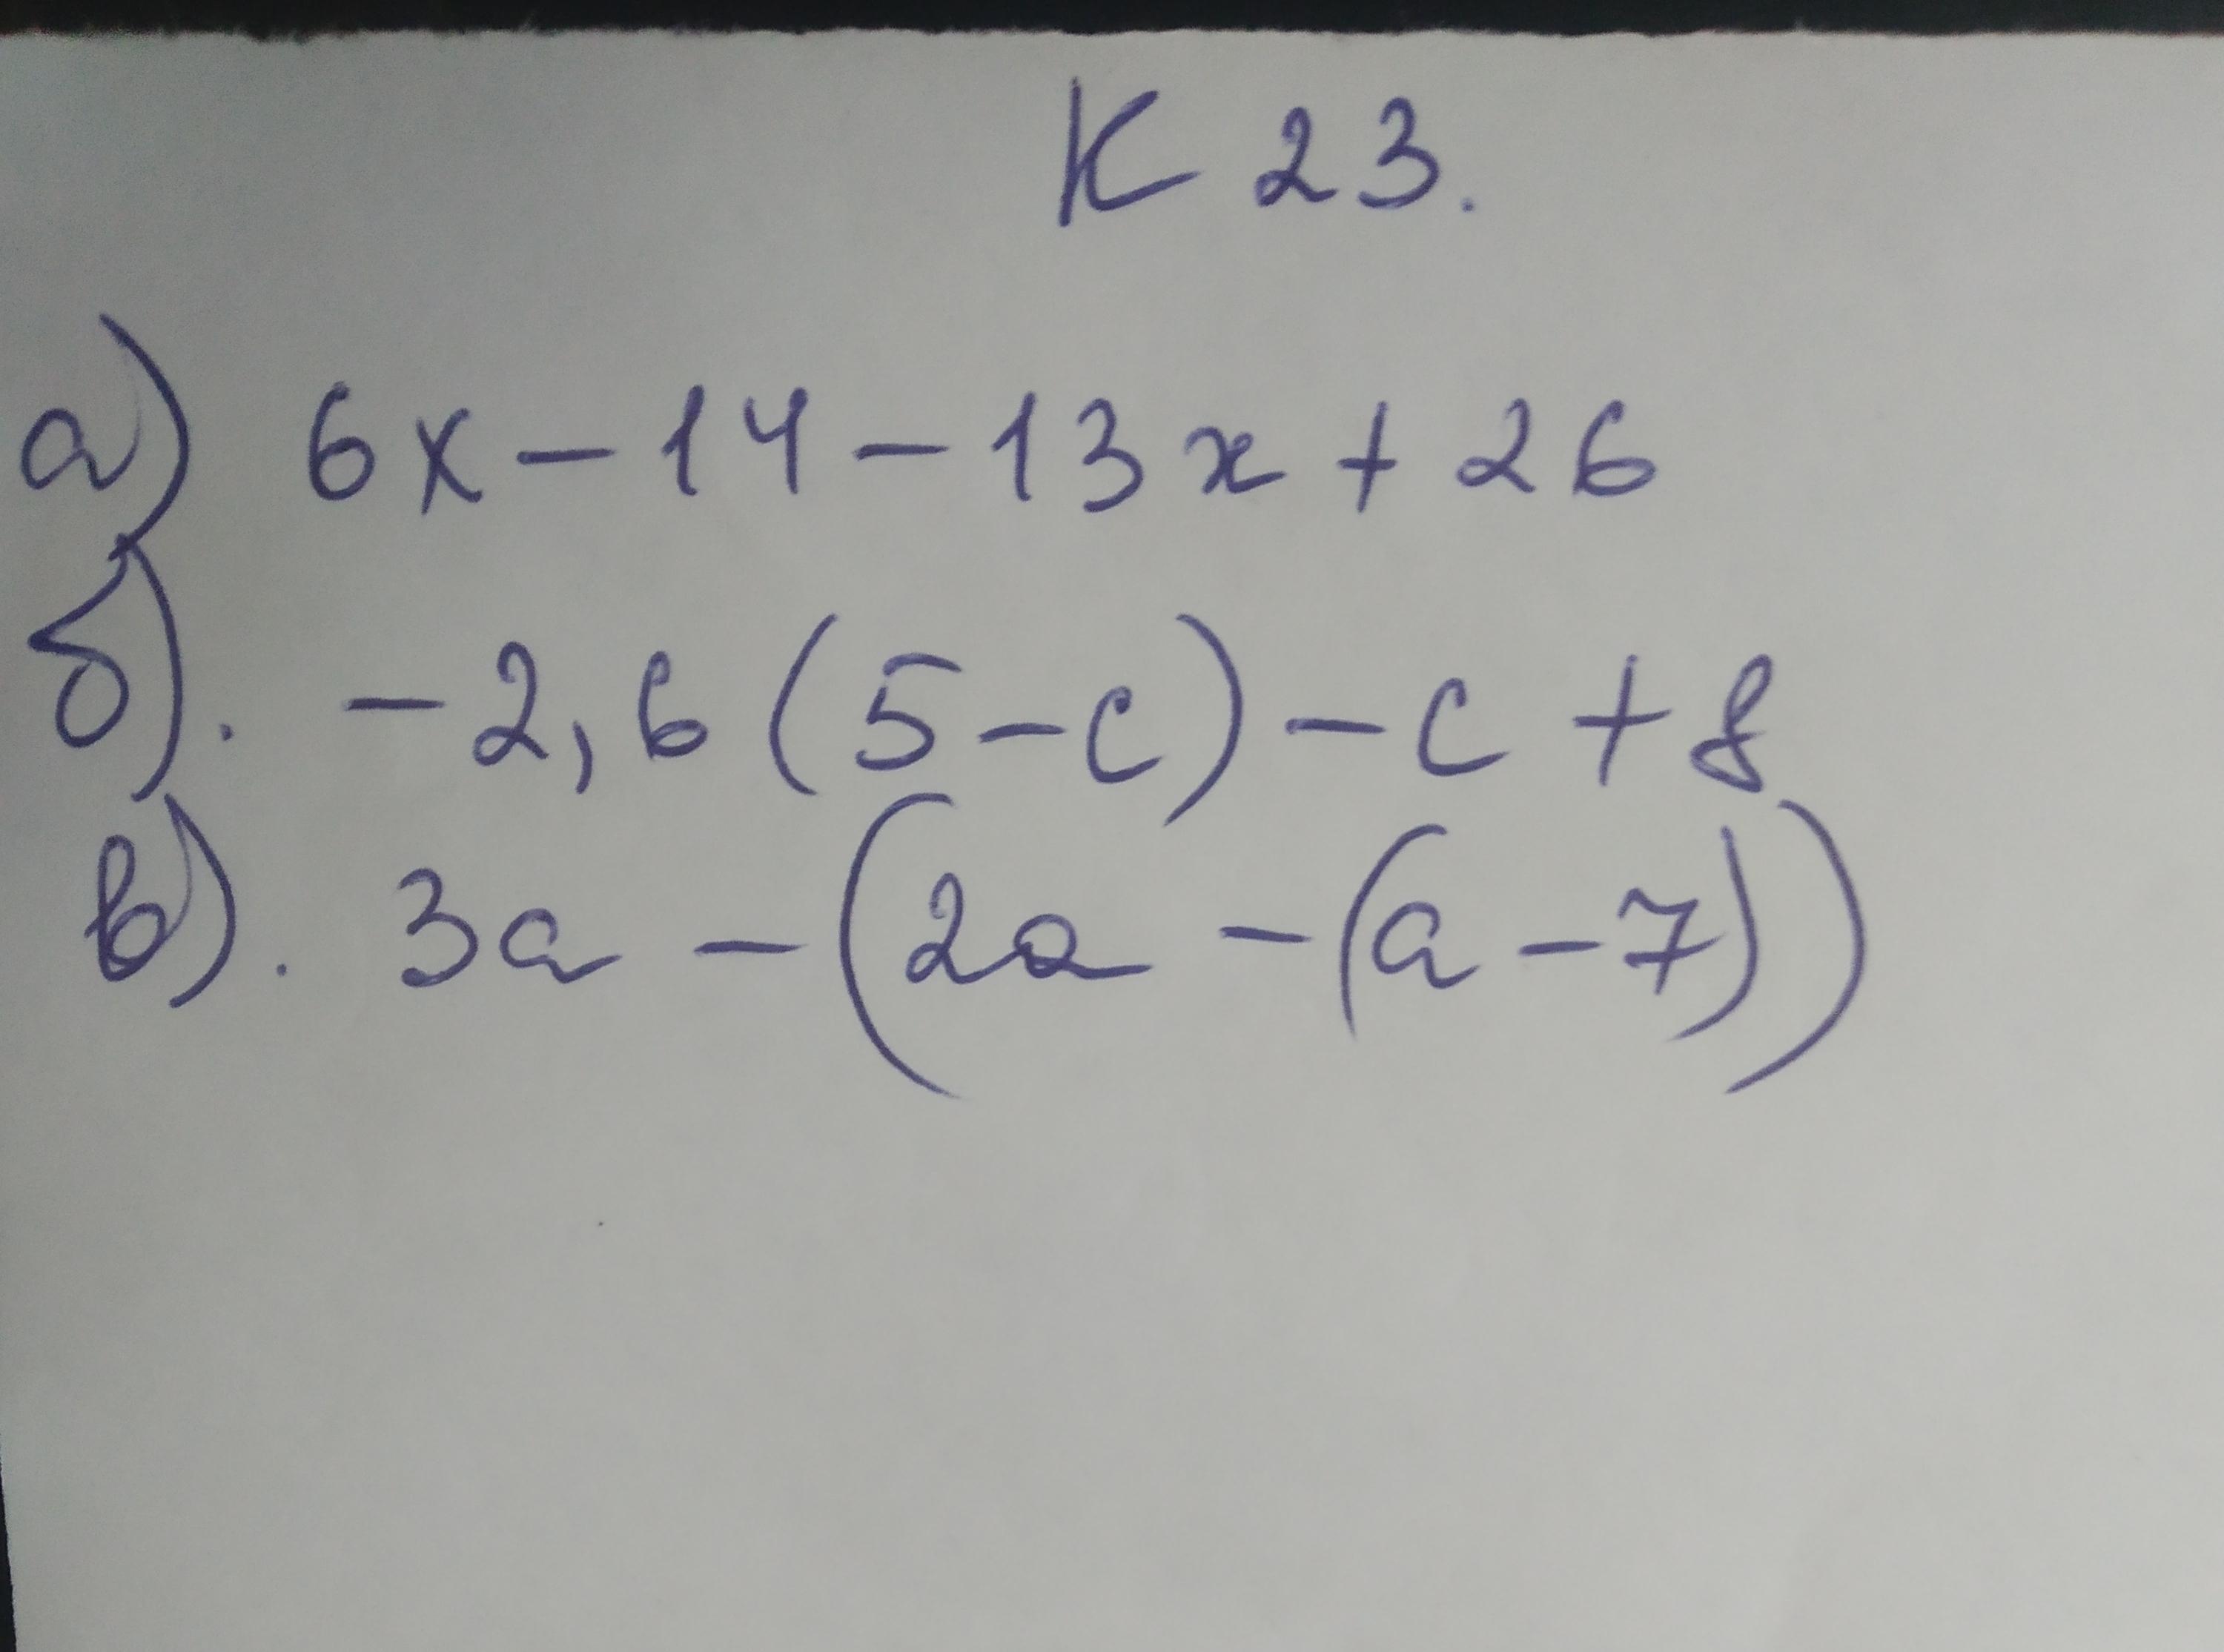 К 23.
а) 6x - 14 - 13x + 26
б). -2,6(5-c) - c + 8
в). 3a - (2a - (a - 7))